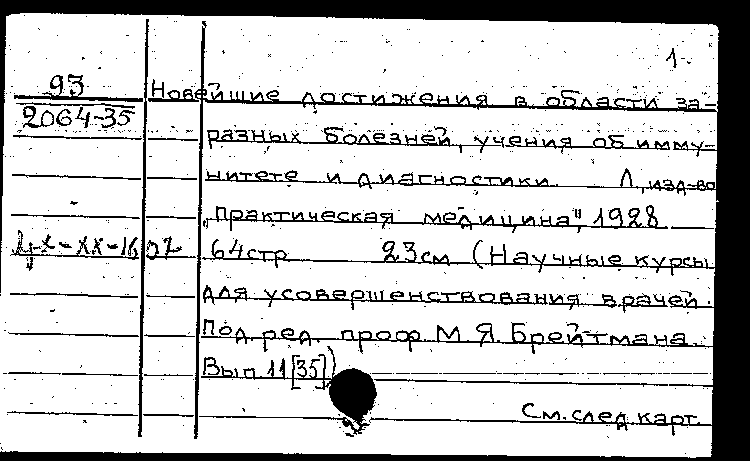 1
93
2064-35
Новейшие достижения в области за-
разных болезней, учения об имму-
нитете и диагностики Л., изд-во
„Практическая медицина", 1928
64 стр 23 см (Научные курсы
для усовершенствования врачей.
Под. ред. проф М. Я. Брейтмана.
Вып 11 [35])
См. след. карт.